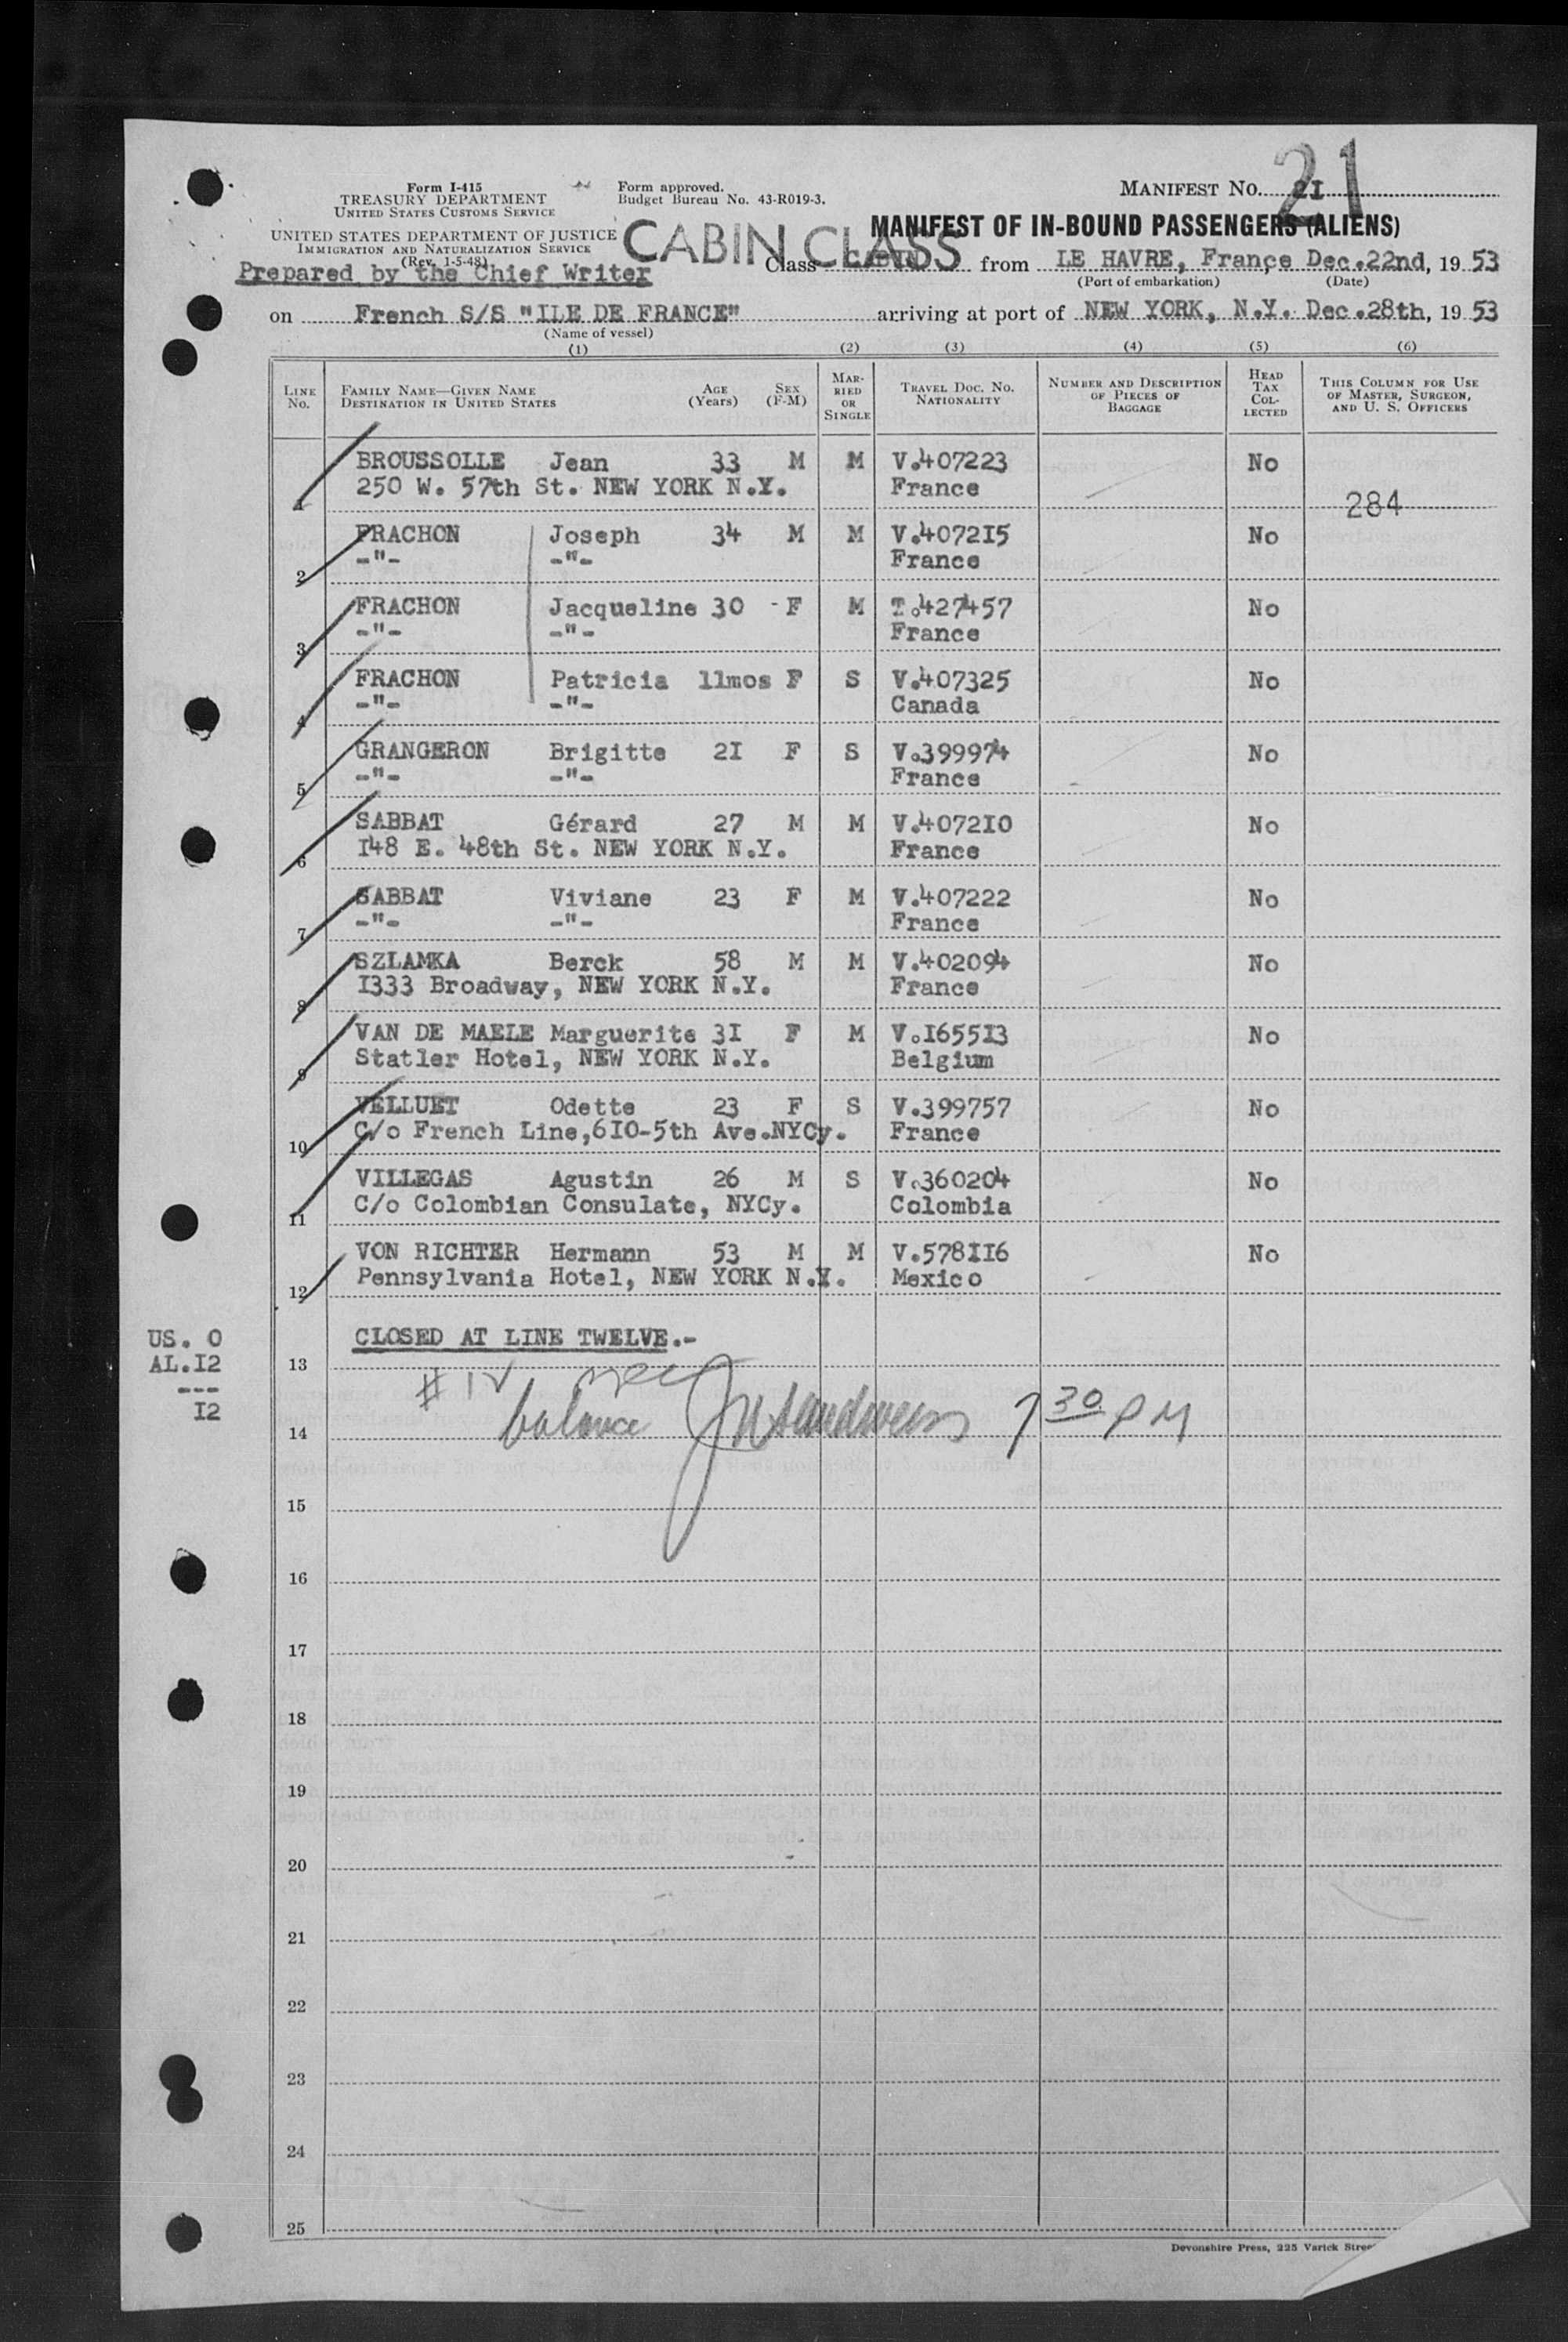 21
Form I-415
TREASURY DEPARTMENT
UNITED STATES CUSTOMS SERVICE
UNITED STATES DEPARTMENT OF JUSTICE
IMMIGRATION AND NATURALIZATION SERVICE
(Rev. 1-5-48)
Form approved.
Budget Bureau No. 43-R019-3.
MANIFEST NO. 2I
MANIFEST OF IN-BOUND PASSENGERS (ALIENS)
CABIN CLASS
Prepared by the Chief Writer
Class CABIN from LE HAVRE, France Dec.22nd, 19 53
(Port of embarkation) (Date)
on French S/S "ILE DE FRANCE" arriving at port of NEW YORK, N.Y. Dec.28th, 19 53
(Name of vessel)
(1) (2) (3) (4) (5) (6)
LINE No. FAMILY NAME—GIVEN NAME DESTINATION IN UNITED STATES AGE (Years) SEX (F-M) MARRIED OR SINGLE TRAVEL DOC. NO. NATIONALITY NUMBER AND DESCRIPTION OF PIECES OF BAGGAGE HEAD TAX COLLECTED THIS COLUMN FOR USE OF MASTER, SURGEON, AND U. S. OFFICERS
BROUSSOLLE Jean 33 M M V.407223 No
1 250 W. 57th St. NEW YORK N.Y. France 284
FRACHON Joseph 34 M M V.407215 No
2 -"- -"- France
FRACHON Jacqueline 30 - F M T.427457 No
3 -"- -"- France
FRACHON Patricia 11mos F S V.407325 No
4 -"- -"- Canada
GRANGERON Brigitte 2I F S V.399974 No
5 -"- -"- France
SABBAT Gérard 27 M M V.4072I0 No
6 I48 E. 48th St. NEW YORK N.Y. France
SABBAT Viviane 23 F M V.407222 No
7 -"- -"- France
SZLAMKA Berck 58 M M V.402094 No
8 I333 Broadway, NEW YORK N.Y. France
VAN DE MAELE Marguerite 3I F M V.I655I3 No
9 Statler Hotel, NEW YORK N.Y. Belgium
VELLUET Odette 23 F S V.399757 No
10 C/o French Line,6I0-5th Ave.NYCy. France
VILLEGAS Agustin 26 M S V.360204 No
11 C/o Colombian Consulate, NYCy. Colombia
VON RICHTER Hermann 53 M M V.578II6 No
12 Pennsylvania Hotel, NEW YORK N.Y. Mexico
US. 0 CLOSED AT LINE TWELVE.-
AL.I2 13
---
I2
14 balance 7 30 PM
15
16
17
18
19
20
21
22
23
24
25
Devonshire Press, 225 Varick